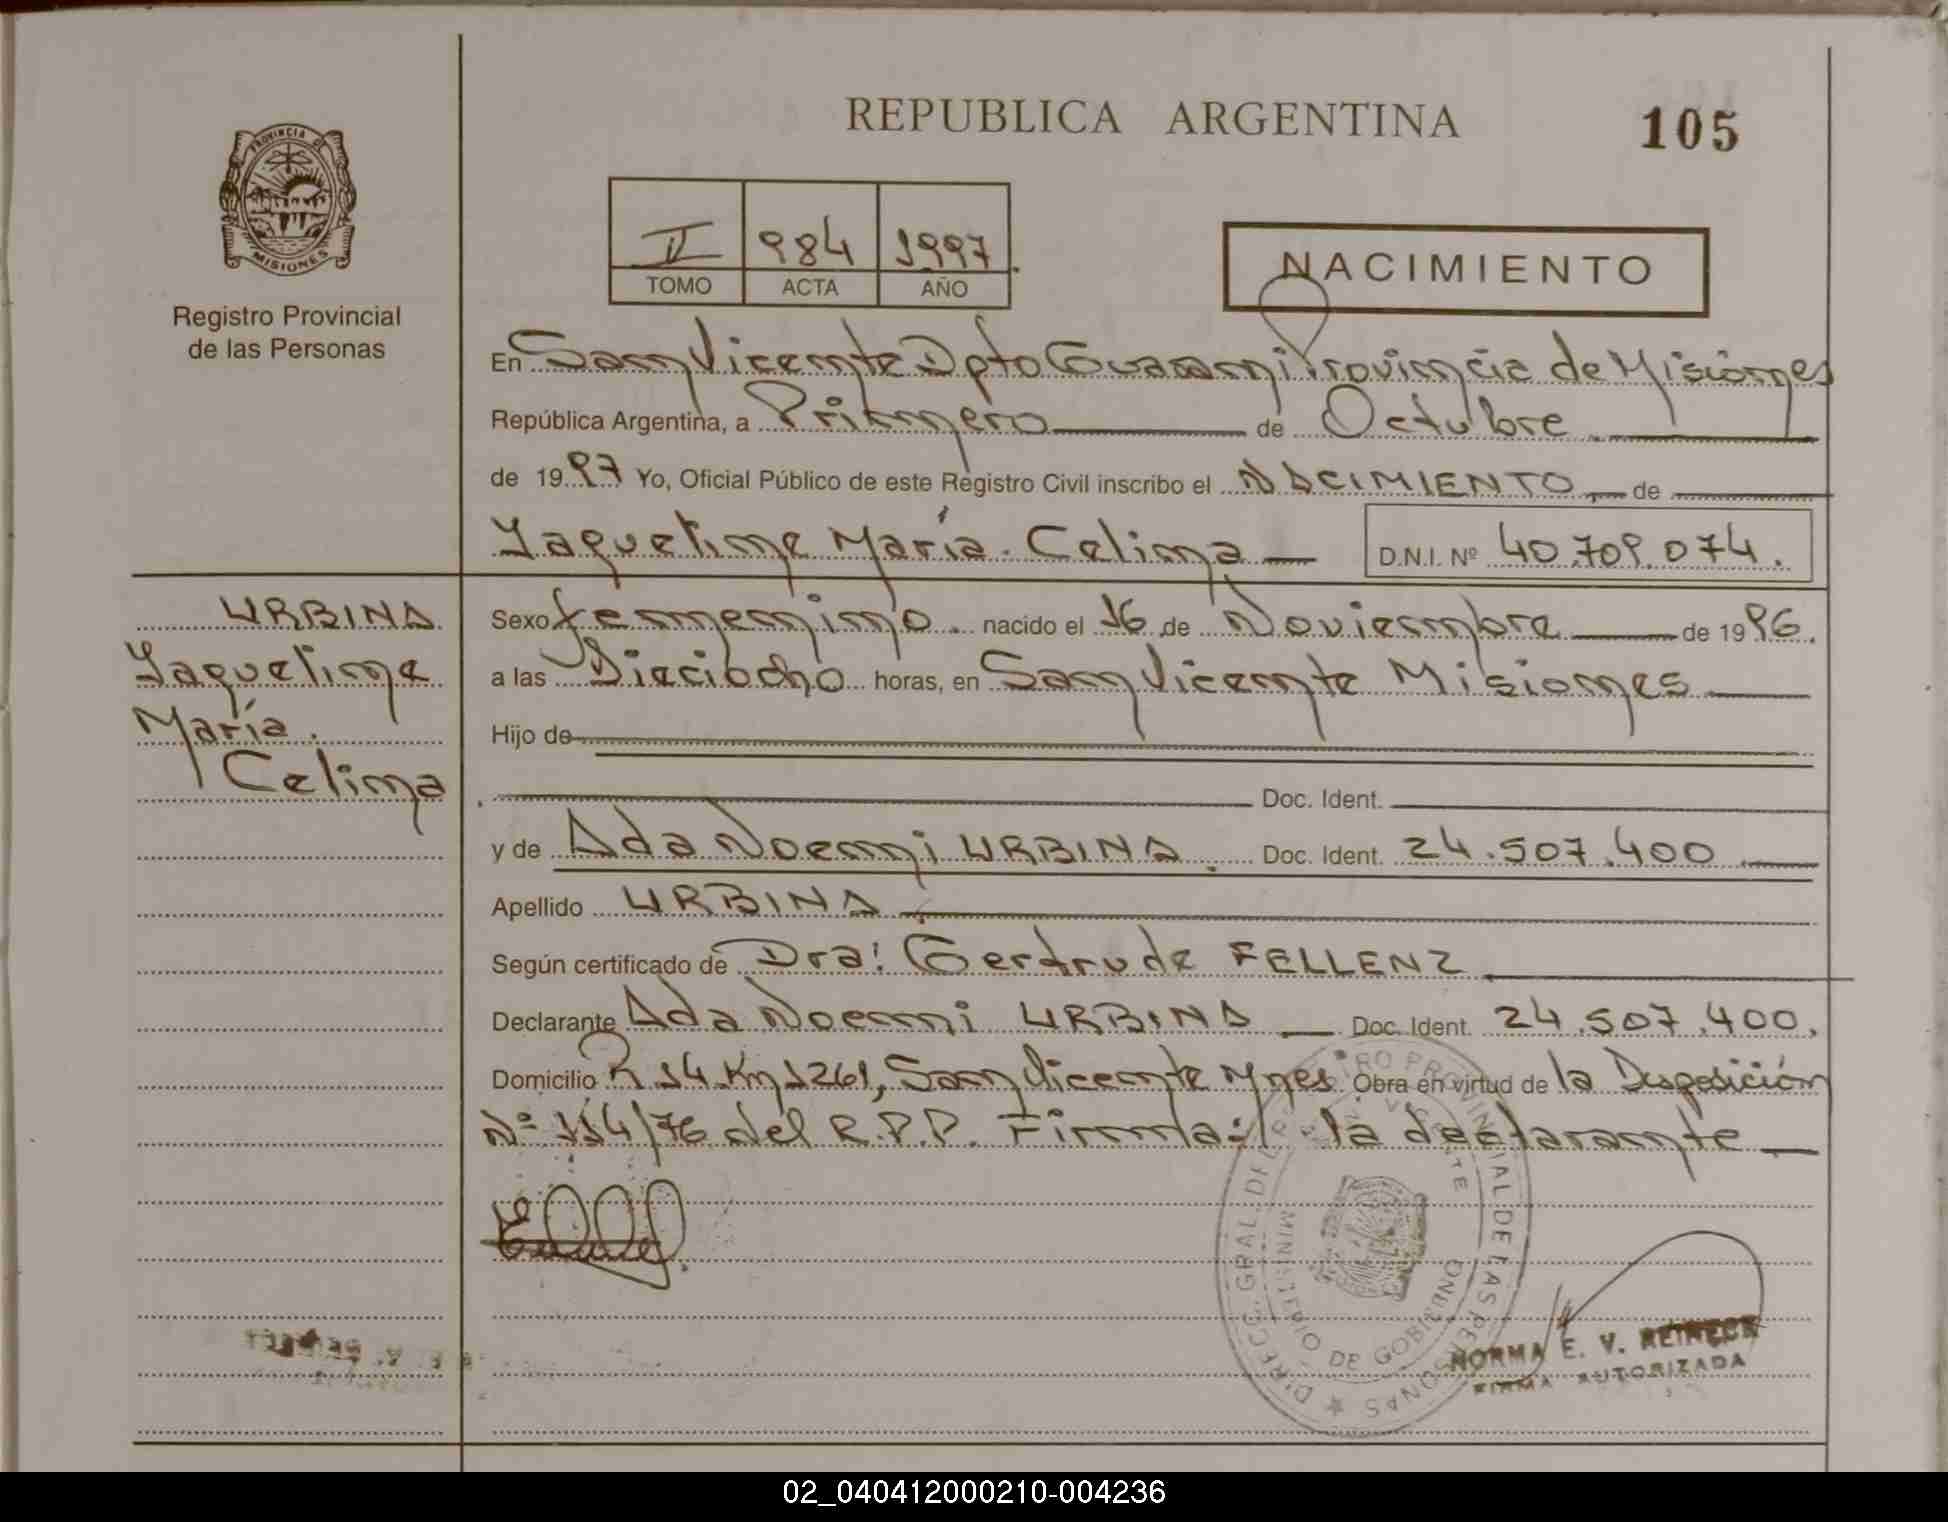 REPUBLICA ARGENTINA
105
PROVINCIA DE
MISIONES
Registro Provincial
de las Personas
II 984 1997
TOMO ACTA AÑO
NACIMIENTO
En San Vicente Dpto Guarani Provincia de Misiones
República Argentina, a Primero de Octubre
de 1997 Yo, Oficial Público de este Registro Civil inscribo el NACIMIENTO de
Yaqueline María Celina D.N.I. Nº 40.709.074.
URBINA
Yaqueline
María
Celina
Sexo femenino nacido el 16 de Noviembre de 1996.
a las Dieciocho horas, en San Vicente Misiones
Hijo de
Doc. Ident.
y de Ada Noemi URBINA Doc. Ident. 24.507.400
Apellido URBINA
Según certificado de Dra: Gertrude FELLENZ
Declarante Ada Noemi URBINA Doc. Ident. 24.507.400.
Domicilio R 14 Km 1261, San Vicente Mnes Obra en virtud de la Disposición
Nº 114/76 del R.P.P. Firma: la declarante
DIRECC. GRAL. DEL REGISTRO PROVINCIAL DE LAS PERSONAS
MINISTERIO DE GOBIERNO
NORMA E. V. REINECK
FIRMA AUTORIZADA
02_040412000210-004236